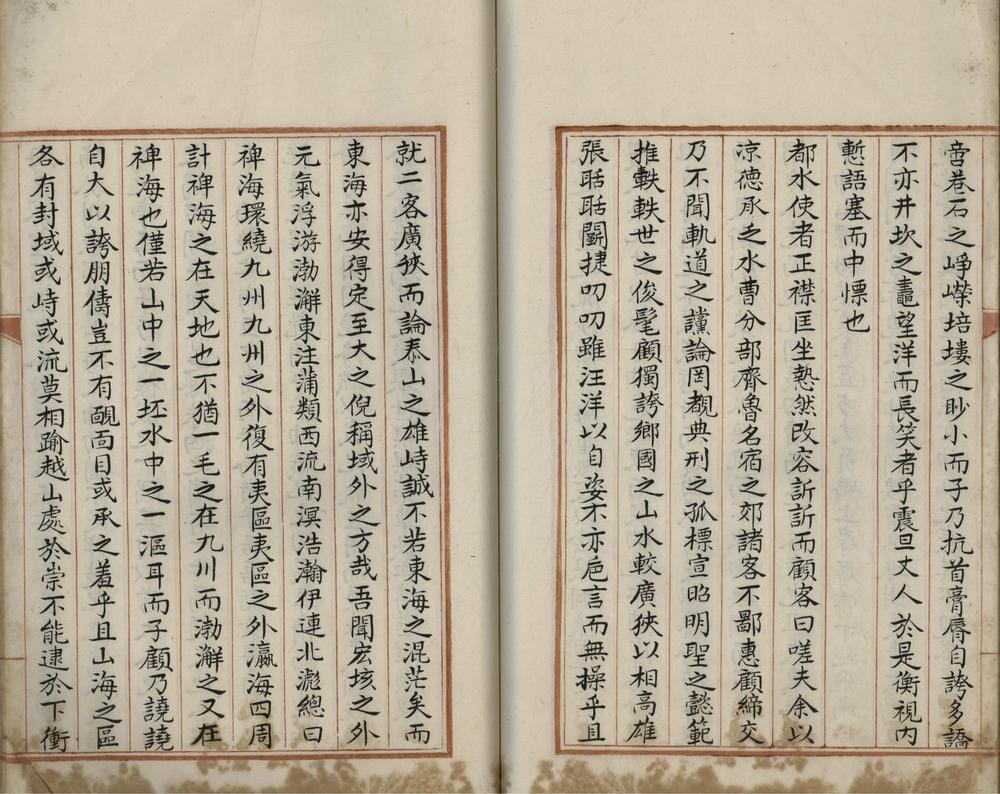 啻巷石之崢嶸培塿之眇小而子乃抗首膏脣自誇多譑
不亦井坎之鼃望洋而長笑者乎震旦丈人於是衡視內
慙語塞而中慓也
都水使者正襟匡坐慹然改容訢訢而顧客曰嗟夫余以
凉德承乏水曹分部齊魯名宿之郊諸客不鄙惠顧締交
乃不聞軌道之讜論罔覩典刑之孤標宣昭明聖之懿範
推軼軼世之俊髦顧獨誇鄉國之山水較廣狹以相高雄
張聒聒鬭捷叨叨雖汪洋以自姿不亦卮言而無操乎且
就二客廣狹而論泰山之雄峙誠不若東海之混茫矣而
東海亦安得定至大之倪稱域外之方哉吾聞宏垓之外
元氣浮游渤澥東注蒲類西流南溟浩瀚伊連北滮總曰
裨海環繞九州九州之外復有夷區夷區之外瀛海四周
計裨海之在天地也不猶一毛之在九川而渤澥之又在
裨海也僅若山中之一坯水中之一漚耳而子顧乃譊譊
自大以誇朋儔豈不有靦面目或承之羞乎且山海之區
各有封域或峙或流莫相踰越山處於崇不能逮於下衝